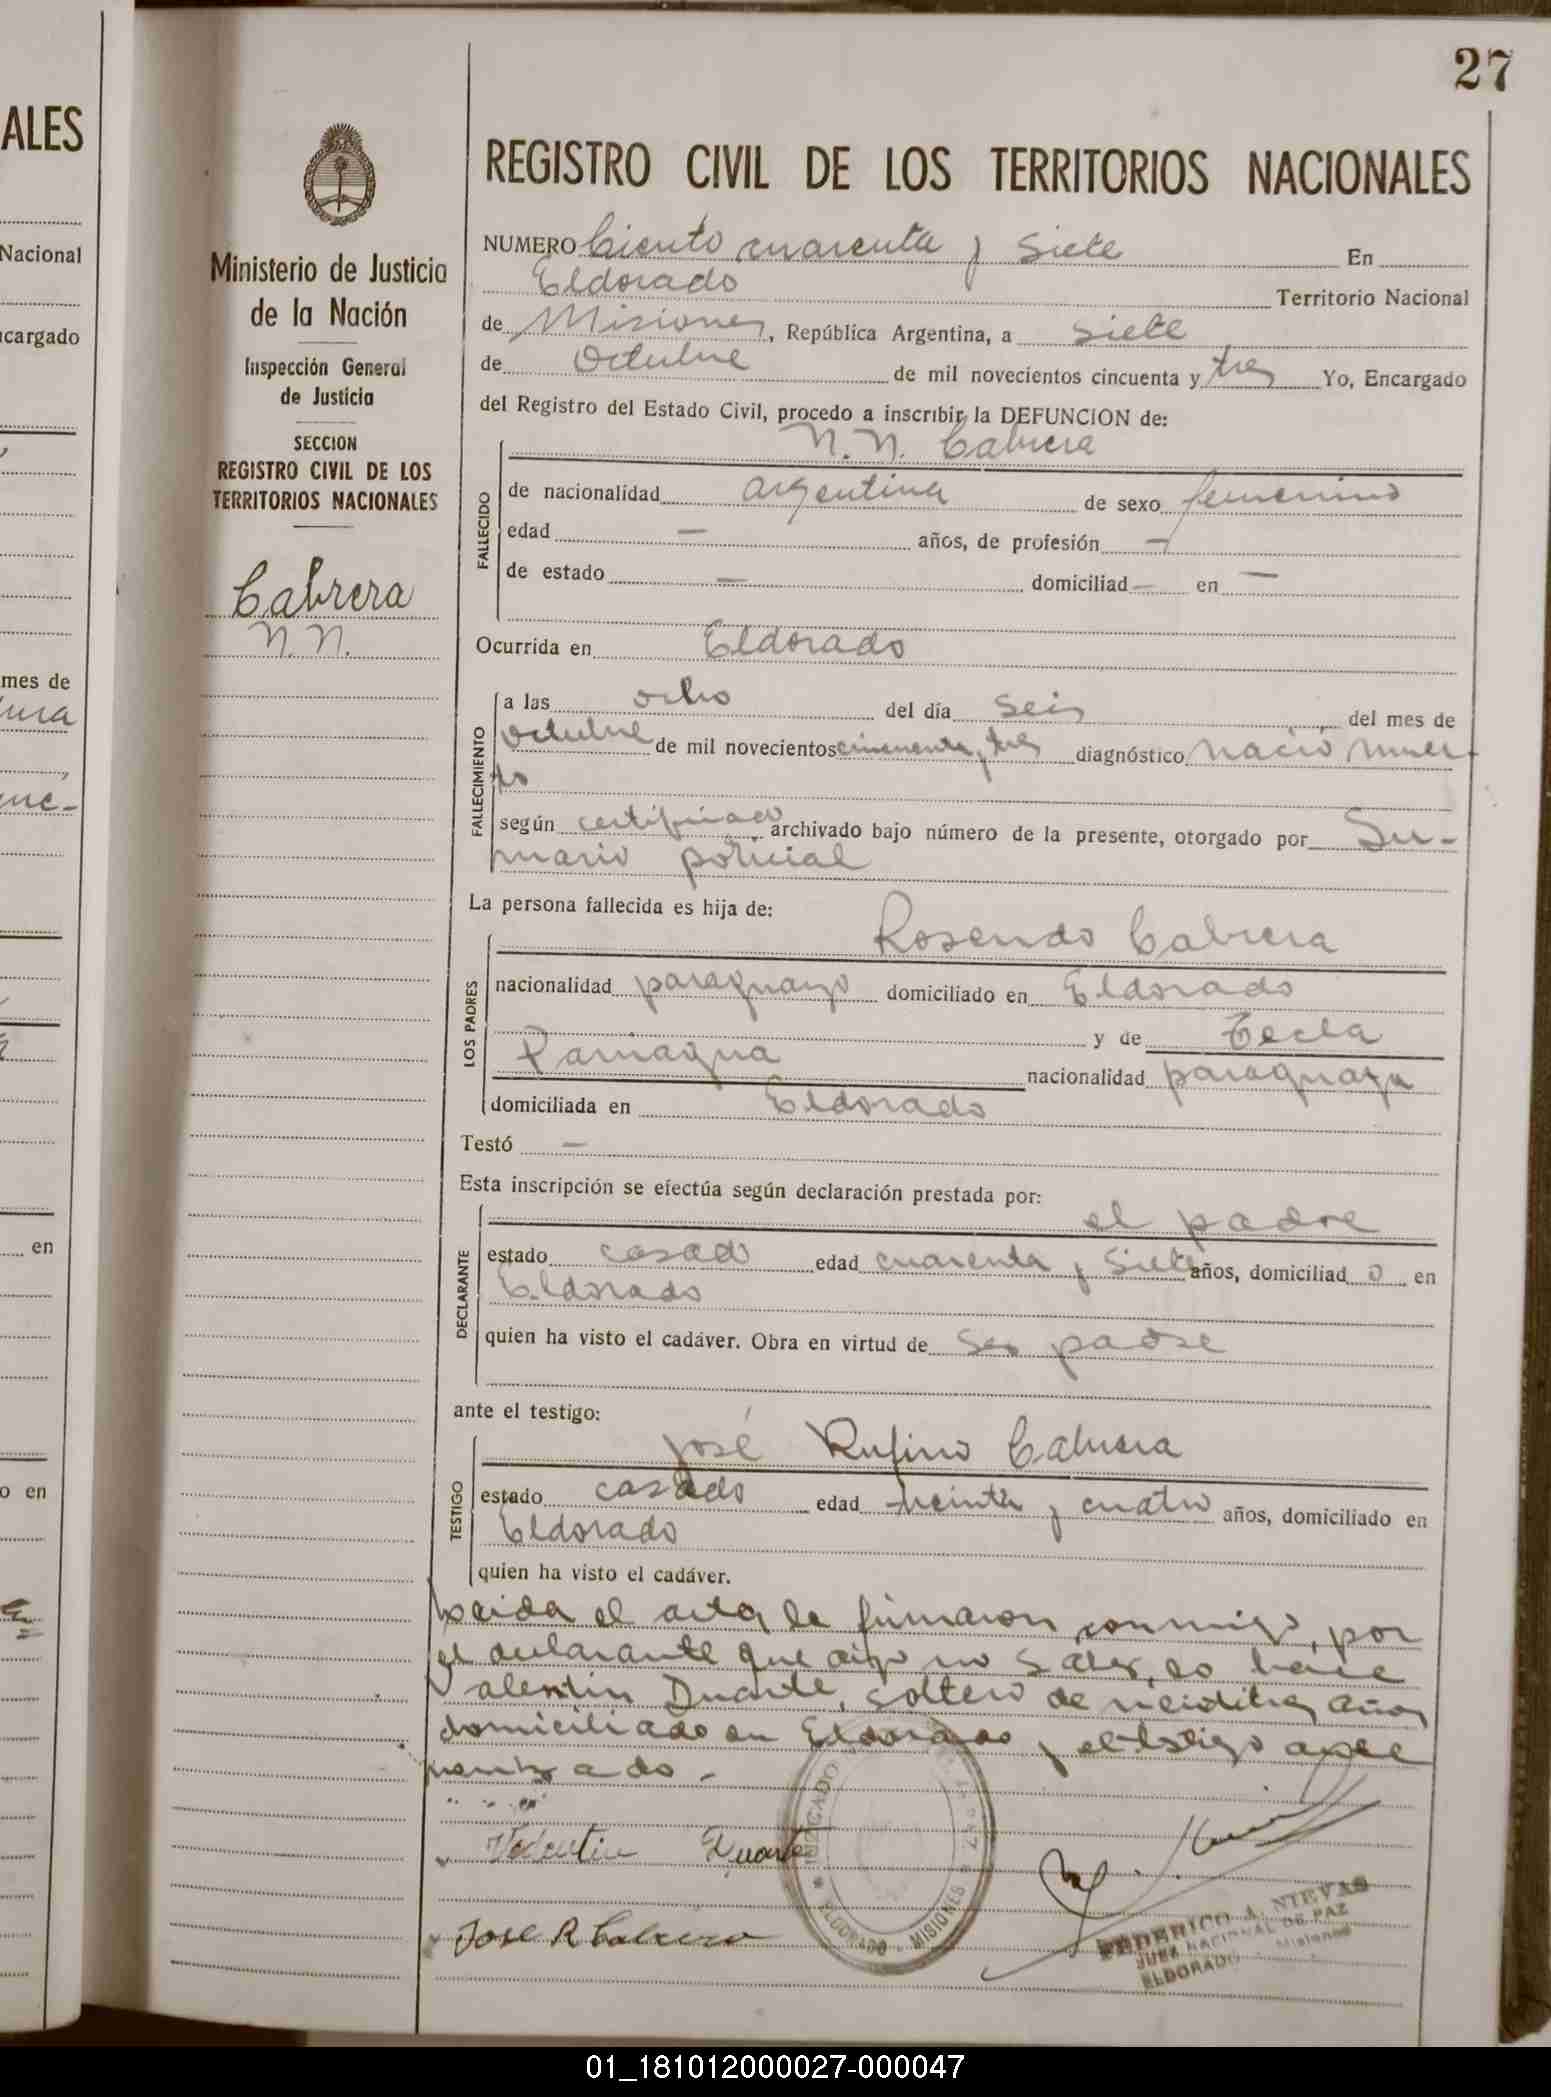 27
ALES
Nacional
cargado
mes de
en
o en
Ministerio de Justicia
de la Nación
Inspección General
de Justicia
SECCION
REGISTRO CIVIL DE LOS
TERRITORIOS NACIONALES
Cabrera
N. N.
REGISTRO CIVIL DE LOS TERRITORIOS NACIONALES
NUMERO Ciento cuarenta y Siete En
Eldorado Territorio Nacional
de Misiones, República Argentina, a siete
de Octubre de mil novecientos cincuenta y tres Yo, Encargado
del Registro del Estado Civil, procedo a inscribir la DEFUNCION de:
N. N. Cabrera
FALLECIDO
de nacionalidad argentina de sexo femenino
edad — años, de profesión —
de estado — domiciliad — en —
Ocurrida en Eldorado
FALLECIMIENTO
a las ocho del día seis del mes de
Octubre de mil novecientos cincuenta y tres diagnóstico nació muer-
to
según certificado archivado bajo número de la presente, otorgado por Su-
mario policial
La persona fallecida es hija de:
Rosendo Cabrera
LOS PADRES
nacionalidad paraguayo domiciliado en Eldorado
y de Tecla
Paniagua nacionalidad paraguaya
domiciliada en Eldorado
Testó —
Esta inscripción se efectúa según declaración prestada por:
el padre
DECLARANTE
estado casado edad cuarenta y siete años, domiciliad o en
Eldorado
quien ha visto el cadáver. Obra en virtud de ser padre
ante el testigo:
José Rufino Cabrera
TESTIGO
estado casado edad treinta y cuatro años, domiciliado en
Eldorado
quien ha visto el cadáver.
Leida el acta la firmaron conmigo, por
el declarante que dijo no saber, lo hace
Valentin Duarte, soltero de veintitres años
domiciliado en Eldorado y el testigo
Valentin Duarte
Jose R Cabrera
JUZGADO
ELDORADO - MISIONES
FEDERICO A. NIEVAS
JUEZ NACIONAL DE PAZ
ELDORADO - Misiones
01_181012000027-000047